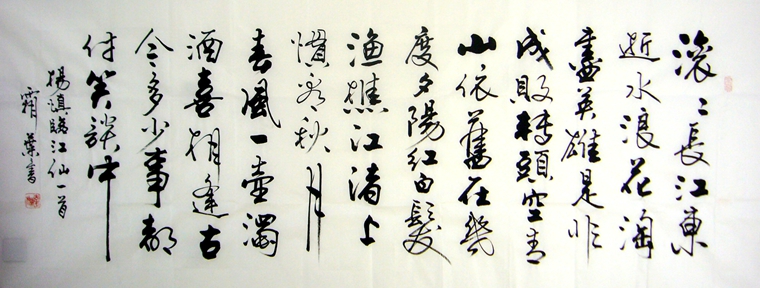 滚〻長江東
逝水浪花淘
盡英雄是非
成敗轉頭空青
山依舊在幾
度夕陽红白髮
渔樵江渚上
惯看秋月
春風一壺濁
酒喜相逢古
今多少事都
付笑談中
楊慎臨江仙一首
霜葉書